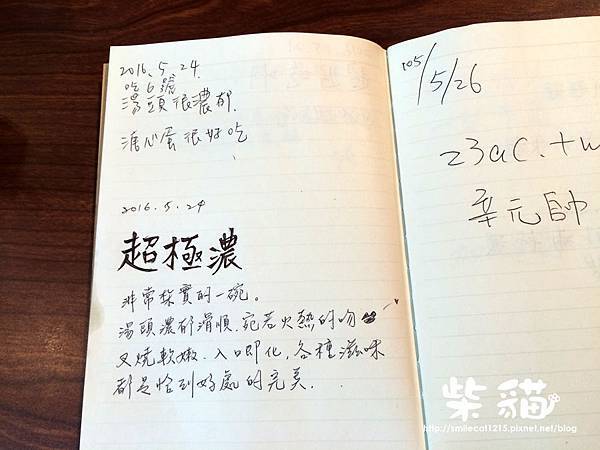 2016.5.24.
吃6號
湯頭很濃郁.
溏心蛋很好吃
2016.5.24
超極濃
非常紮實的一碗。
湯頭濃郁滑順.宛若火熱的吻
叉燒軟嫩.入口即化.各種滋味
都是恰到好處的完美.
105/5/26
23ac.tw
辛元帥
柴貓
http://smilecat1215.pixnet.net/blog